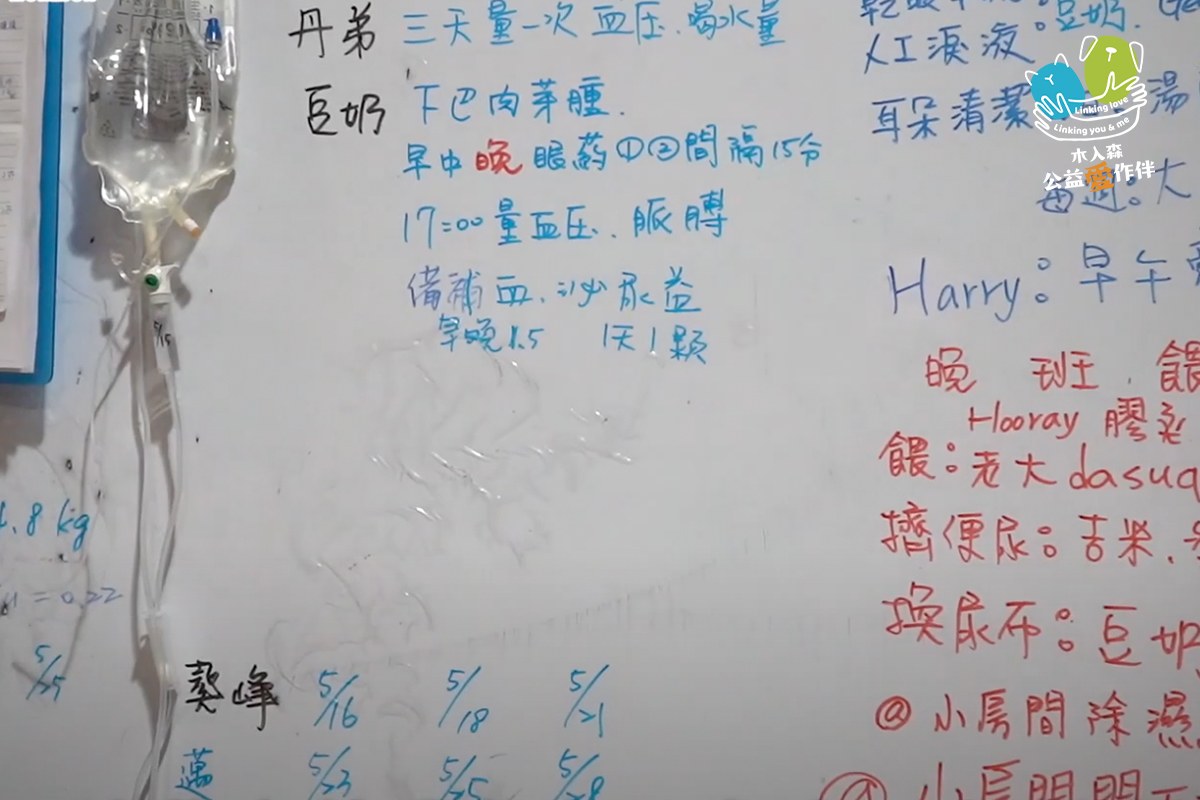 丹弟 三天量一次 血压.喝水量
豆奶 下巴肉芽腫.
早中晚 眼藥①②間隔15分
17:00 量血压. 脈膊
備補血.泌尿益
早晚1.5 1天1顆
4.8 kg
= 0.22
5/25
龔峰 5/16 5/18 5/21
邁 5/23 5/25 5/28
豆奶.
人工淚液:
耳朵清潔 湯
每週:大
Harry:早午
晚 班. 餵
Hooray 膠
餵:老大 dasuq
擠便尿:吉米.
換尿布:豆奶
@ 小房間除濕
小房間門
Linking love
Linking you & me
木入森
公益愛作伴